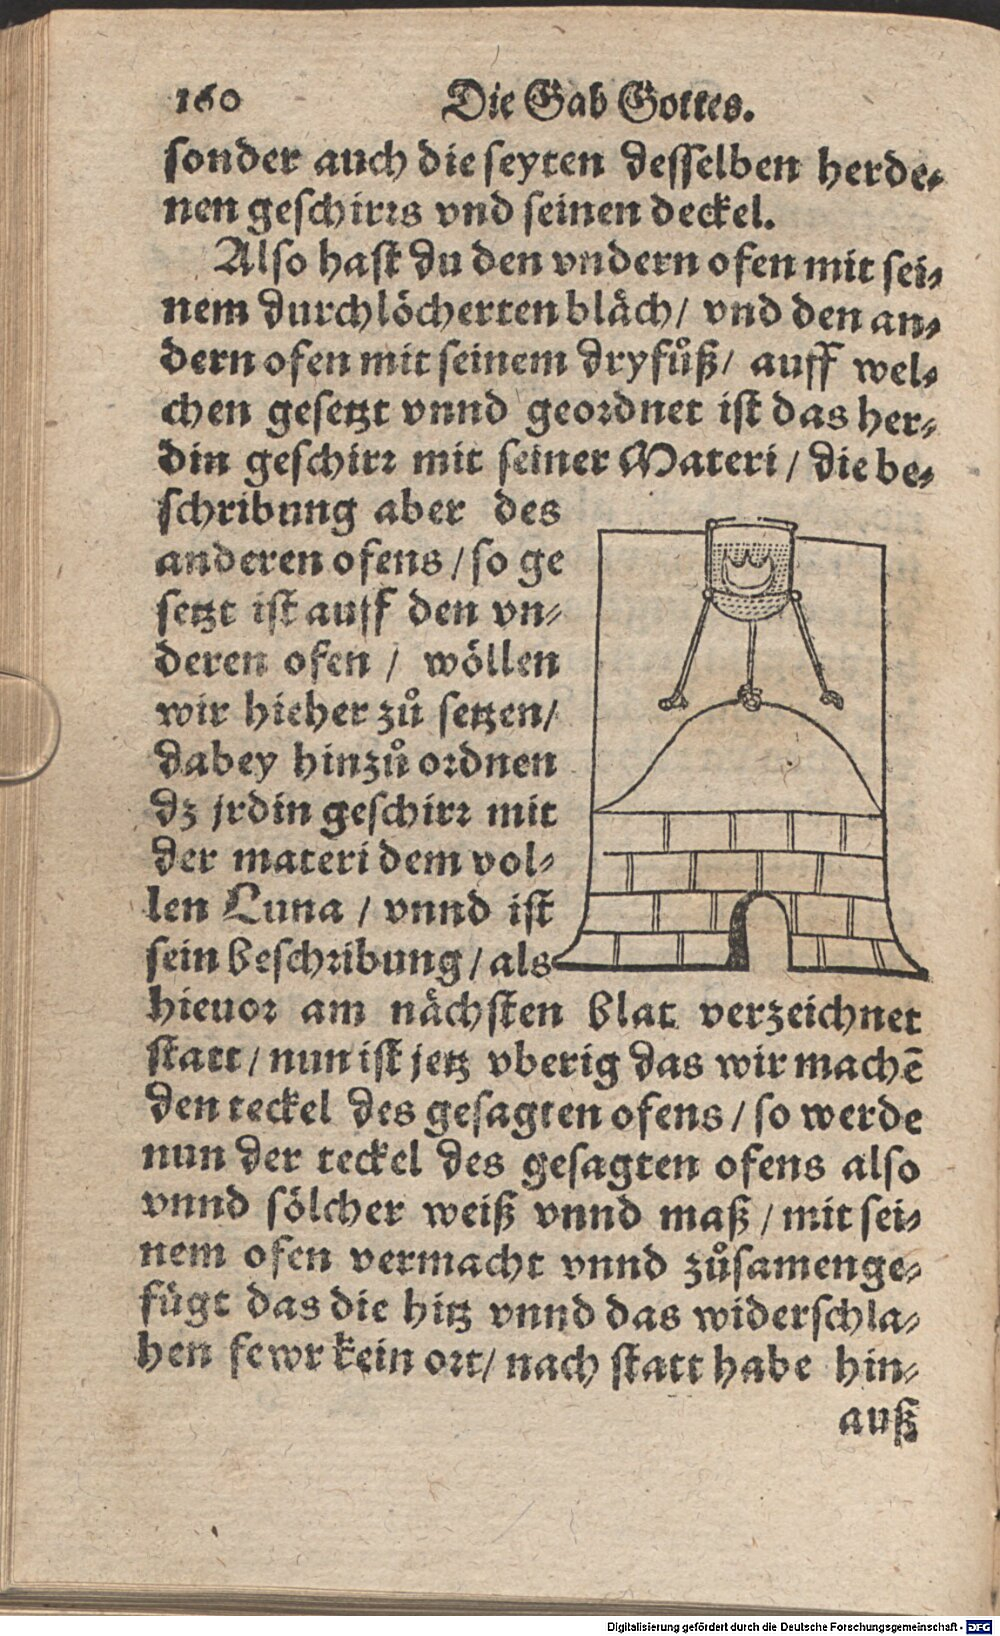 160 Die Gab Gottes.
sonder auch die seyten desselben herde⸗
nen geschirrs vnd seinen deckel.
Also hast du den vndern ofen mit sei⸗
nem durchlöcherten blåch/ vnd den an⸗
dern ofen mit seinem dryfůß/ auff wel⸗
chen gesetzt vnnd geordnet ist das her⸗
din geschirr mit seiner Materi / die be⸗
schribung aber des
anderen ofens / so ge
setzt ist auff den vn⸗
deren ofen / wöllen
wir hieher zů setzen/
dabey hinzů ordnen
dz jrdin geschirr mit
der materi dem vol⸗
len Luna / vnnd ist
sein beschribung / als
hieuor am nåchsten blat verzeichnet
statt / nun ist jetz vberig das wir machē
den teckel des gesagten ofens / so werde
nun der teckel des gesagten ofens also
vnnd sölcher weiß vnnd maß / mit sei⸗
nem ofen vermacht vnnd zůsamenge⸗
fügt das die hitz vnnd das widerschla⸗
hen fewr kein ort/ nach statt habe hin⸗
auß
Digitalisierung gefördert durch die Deutsche Forschungsgemeinschaft - DFG